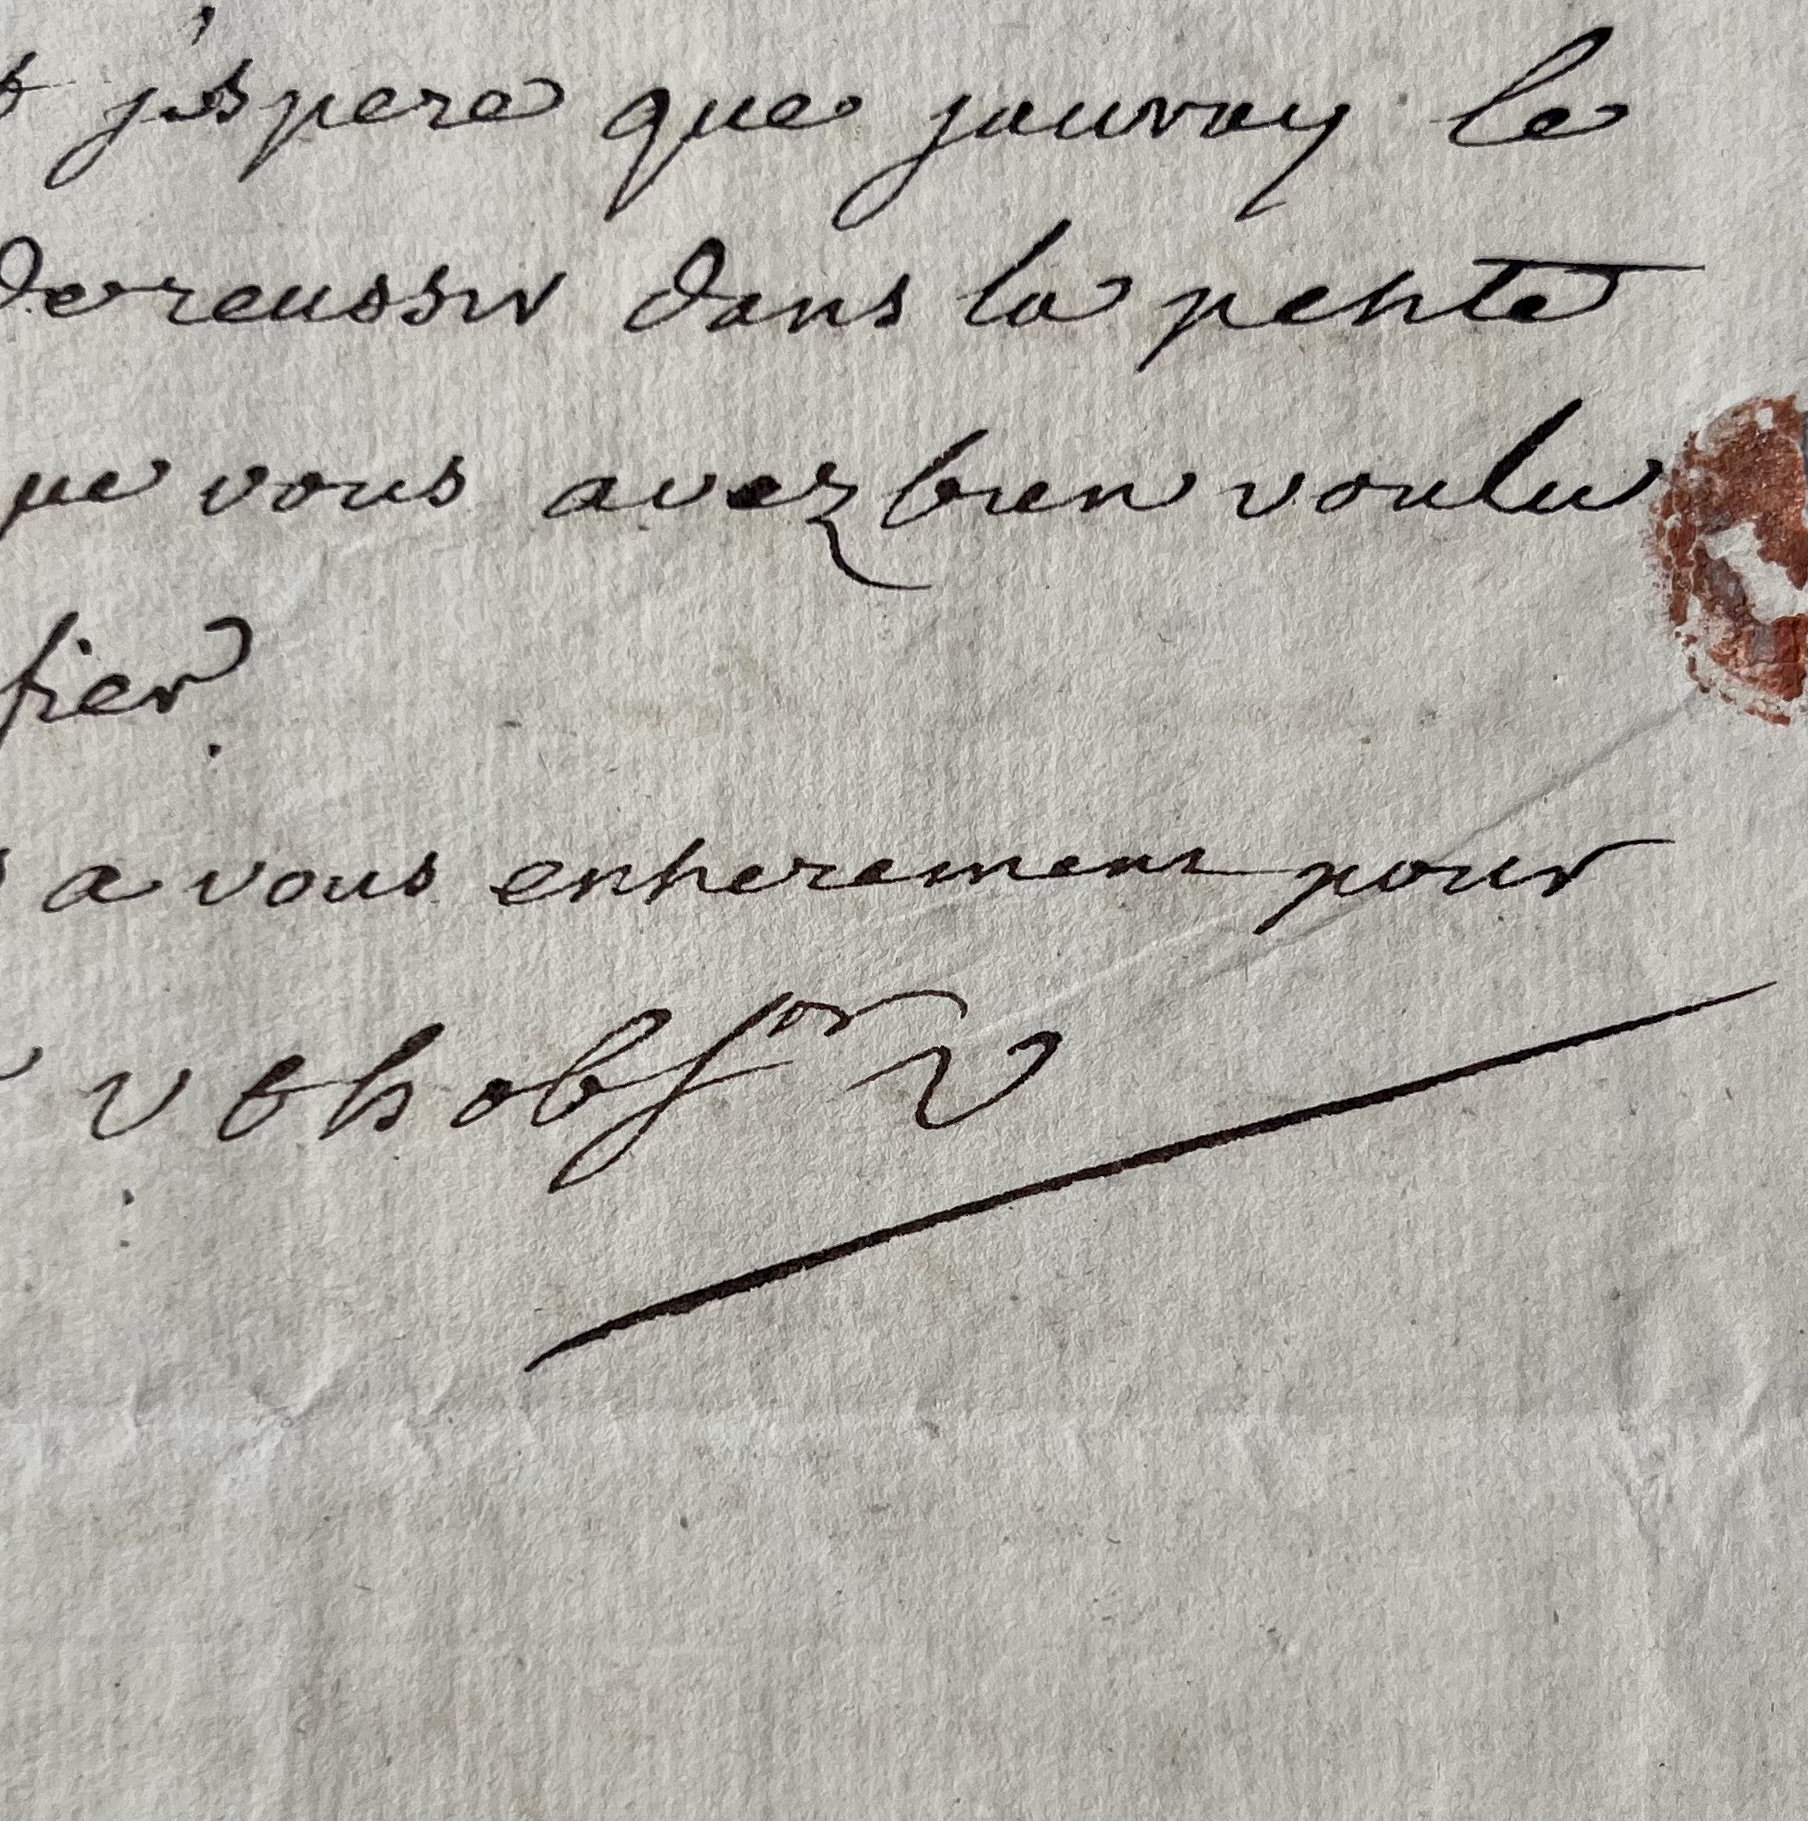 j'espere que jauray le
de reussir dans la petite
que vous avez bien voulu
fier
a vous entierement pour
v t h ob sor V